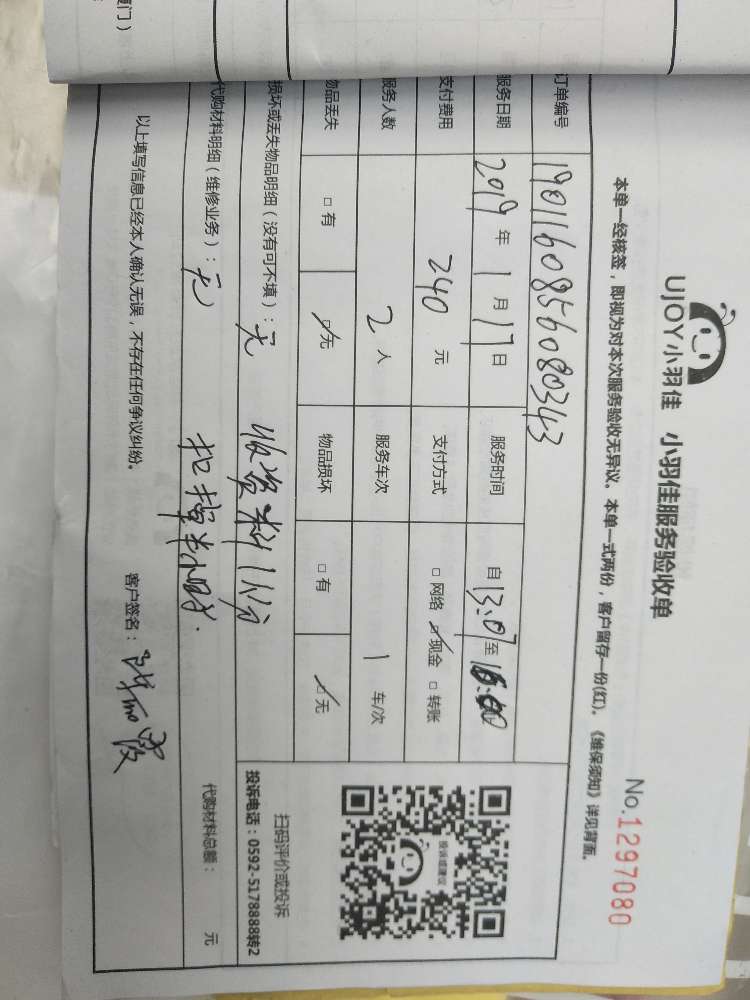 厦门）
UJOY小羽佳 小羽佳服务验收单
No.1297080
本单一经核签，即视为对本次服务验收无异议。本单一式两份，客户留存一份(红)。《维保须知》详见背面。
订单编号 1901160856080343
服务日期 2019 年 1 月 17 日 服务时间 自 13:07 至 16:00
支付费用 240 元 支付方式 □网络 ☑现金 □转账
服务人数 2 人 服务车次 1 车/次
物品丢失 □有 ☑无 物品损坏 □有 ☑无
损坏或丢失物品明细（没有可不填）：无 收资料1份
代购材料明细（维修业务）：无 扣擦半小时.
代购材料总额： 元
扫码评价或投诉
投诉电话：0592-5178888转2
投诉或建议
以上填写信息已经本人确认无误，不存在任何争议纠纷。 客户签名：